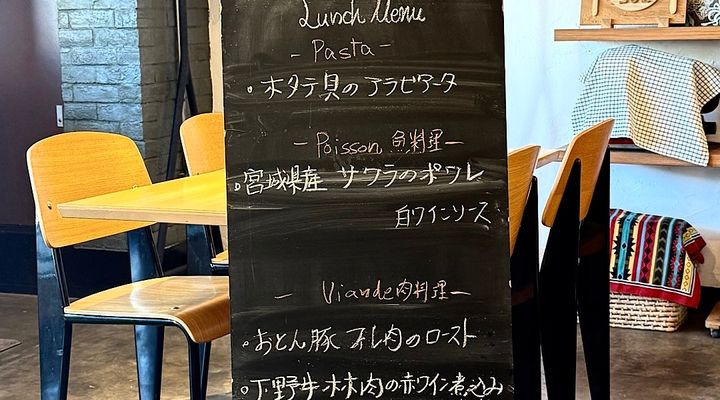 Lunch Menu
- Pasta -
・ホタテ貝のアラビアータ
- Poisson 魚料理 -
・宮城県産 サワラのポワレ
白ワインソース
- Viande肉料理 -
・おとん豚 肉のロースト
・下野牛 肉の赤ワイン煮込み